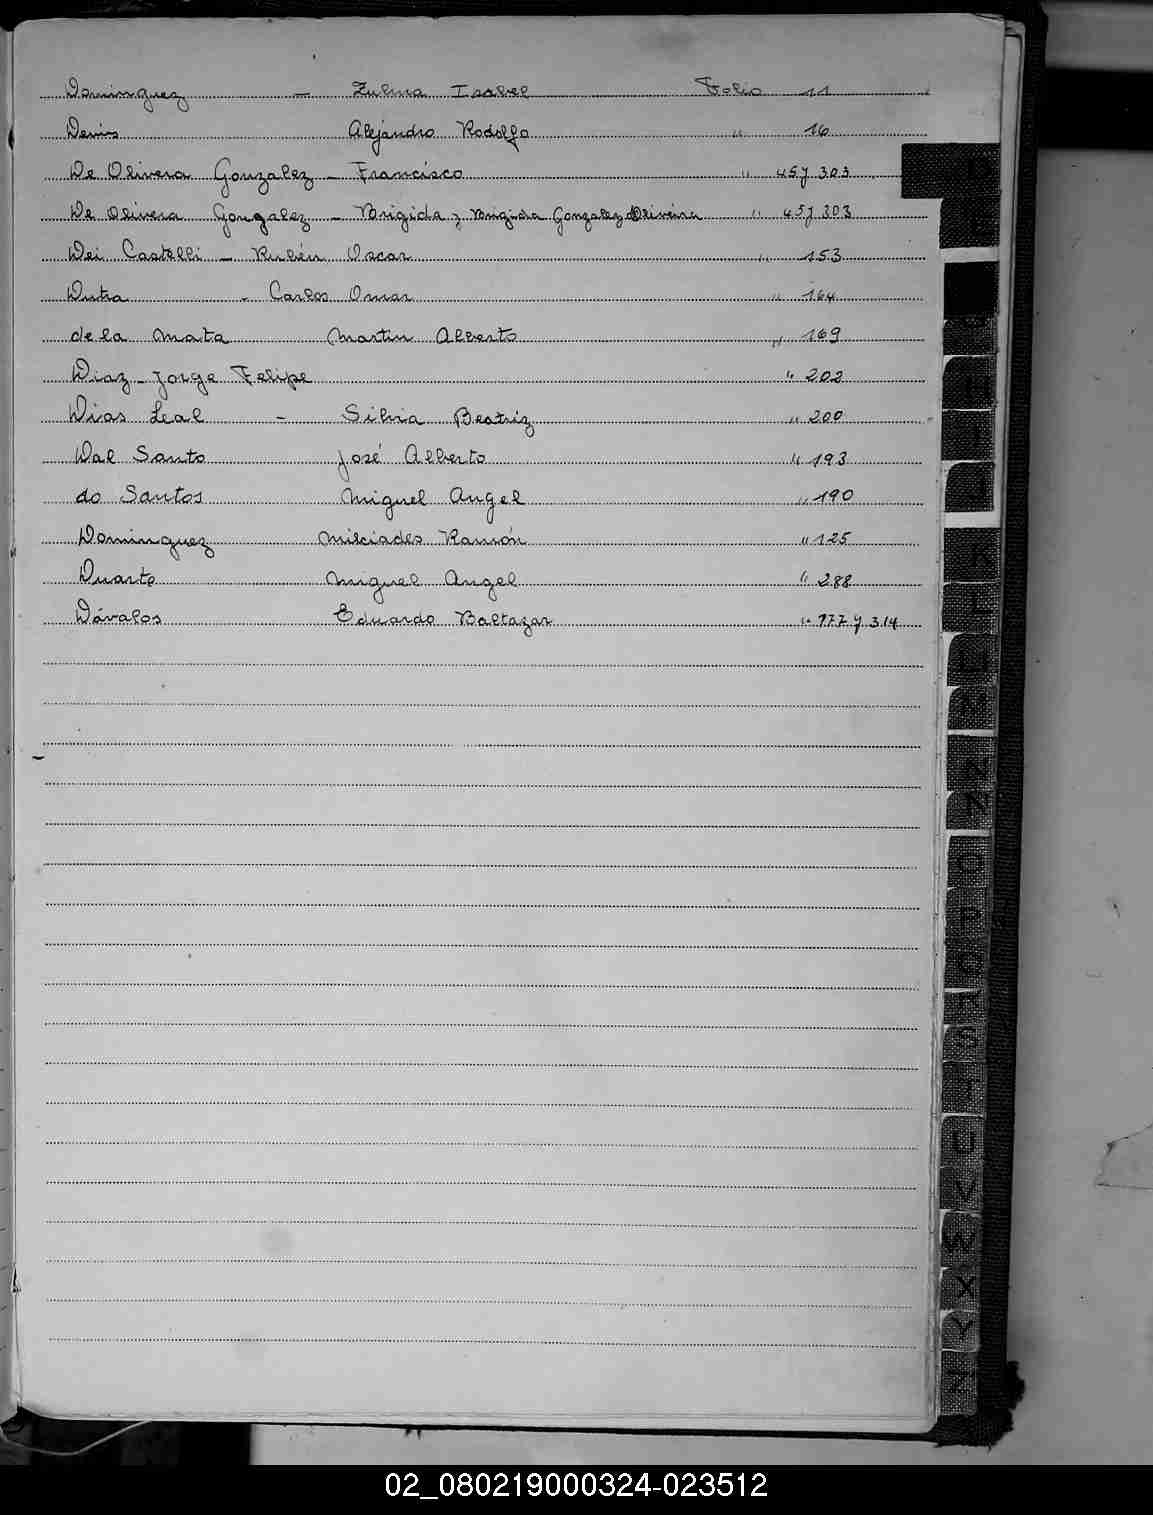 Dominguez - Zulma Isabel Folio 11
Denis Alejandro Rodolfo " 16
De Olivera Gonzalez - Francisco " 45 y 303
De Olivera Gonzalez - Brigida y Brigida Gonzalez Oliveira " 45 y 303
Dei Castelli - Rubén Oscar " 153
Dutra - Carlos Omar " 164
de la Mata Martin Alberto " 169
Diaz - Jorge Felipe " 202
Dias Leal - Silvia Beatriz " 200
Dal Santo José Alberto " 193
do Santos Miguel Angel " 190
Dominguez Milciades Ramón " 125
Duarte Miguel Angel " 288
Dávalos Eduardo Baltazar " 177 y 314
D
E
H
I
J
K
L
LL
M
N
Ñ
O
P
Q
R
S
T
U
V
W
X
Y
Z
02_080219000324-023512